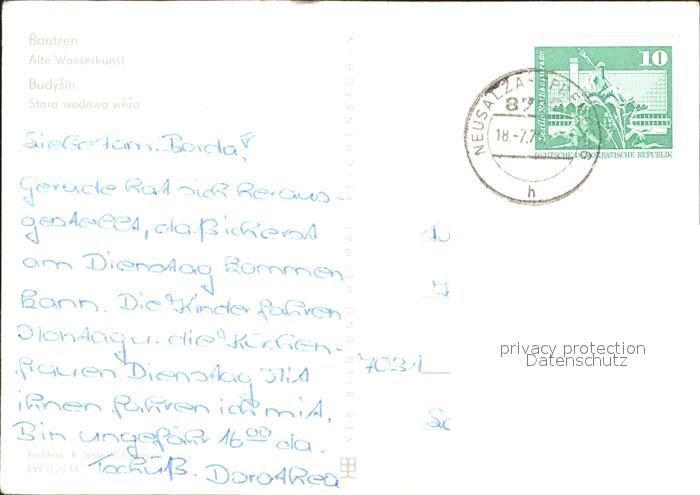 Bautzen
Alte Wasserkunst
Budyšin
Stara wodowa wěža
Liebe Fam. Barda!
Gerade hat sich heraus-
gestellt, daß ich erst
am Dienstag kommen
kann. Die Kinder fahren
Montag u. die Küchen-
frauen Dienstag Mit
ihnen fahren ich mit.
Bin ungefähr 16 00 da.
Tschüß. Dorothea
EVP 0,20 M
VEB BILD UND HEIMAT REICHENBACH V
10
Berlin Rathausstraße
DEUTSCHE DEMOKRATISCHE REPUBLIK
NEUSALZA-SPREMBERG
87
18.-7.7
h
7031
privacy protection
Datenschutz